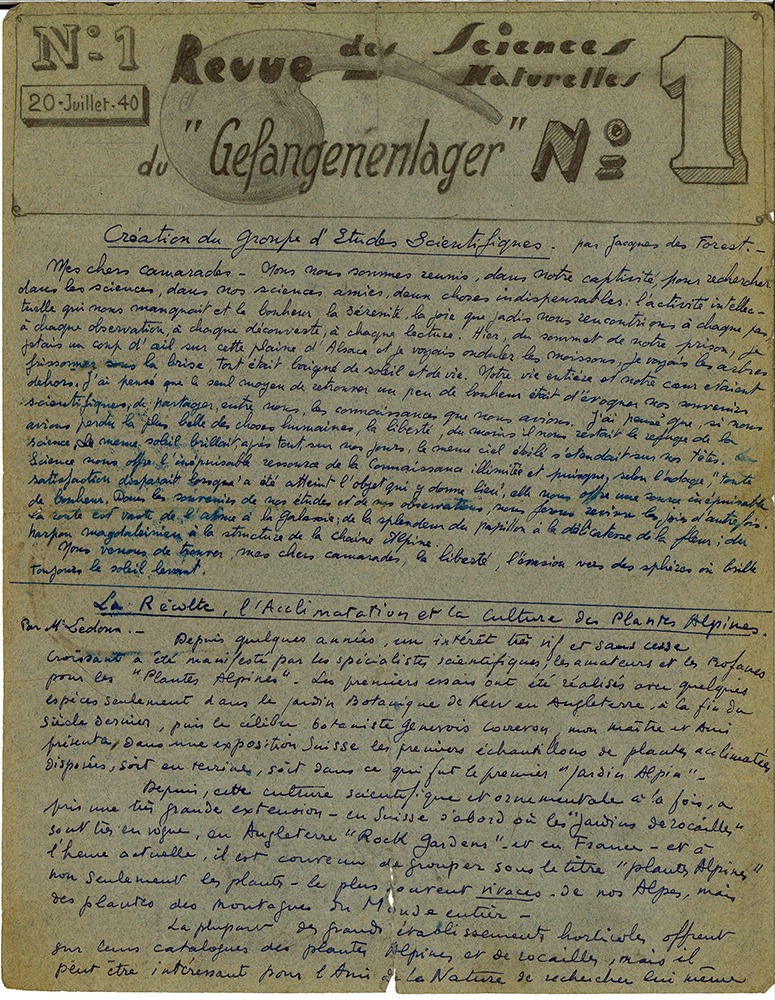 N° 1
20-Juillet-40
Revue des Sciences Naturelles
du "Gefangenenlager" N° 1
Création du Groupe d'Etudes Scientifiques. par Jacques des Forest.-
Mes chers camarades - Nous nous sommes reunis, dans notre captivité, pour rechercher
dans les sciences, dans nos sciences amies, deux choses indispensables: l'activité intellec-
tuelle qui nous manquait et le bonheur, la sérénité, la joie que jadis nous rencontrions à chaque pas
à chaque observation, à chaque découverte, à chaque lecture. Hier, du sommet de notre prison, je
jetais un coup d'œil sur cette plaine d'Alsace et je voyais onduler les moissons, je voyais les arbres
frissonner sous la brise, tout était baigné de soleil et de vie. Notre vie entière et notre cœur etaient
dehors. J'ai pensé que le seul moyen de retrouver un peu de bonheur était d'évoquer nos souvenirs
scientifiques, de partager, entre nous, les connaissances que nous avions. J'ai pensé que, si nous
avions perdu la plus belle des choses humaines, la liberté, du moins il nous restait le refuge de la
science. Le meme soleil brillait, après tout, sur nos jours, le meme ciel étoilé s'etendait sur nos têtes. La
Science nous offre l'inépuisable ressource de la Connaissance illimitée et puisque, selon l'adage, "toute
satisfaction disparait lorsque a été atteint l'objet qui y donne lieu", elle nous offre une source inépuisable
de bonheur. Dans les souvenirs de nos études et de nos observations, nous ferons revivre les joies d'autre fois.
La route est vaste de l'atome à la Galaxie; de la splendeur du papillon à la délicatesse de la fleur; du
harpon magdalénien à la structure de la chaine Alpine.
Nous venons de trouver mes chers camarades, la liberté, l'évasion vers des sphères où brille
toujours le soleil levant.
La Récolte, l'Acclimatation et la Culture des Plantes Alpines.
Par Mr Ledoux.- Depuis quelques années, un intérêt très vif et sans cesse
croissant a été manifesté par les spécialistes scientifiques, les amateurs et les Profanes
pour les "Plantes Alpines" - Les premiers essais ont été réalisés avec quelques
espèces seulement dans le jardin Botanique de Kew en Angleterre, à la fin du
siècle dernier, puis le célèbre botaniste genevois Correvon, mon maître et Ami
présenta, dans une exposition Suisse les premiers échantillons de plantes acclimatées
disposées, soit en terrines, soit dans ce qui fut le premier "Jardin Alpin" -
Depuis, cette culture scientifique et ornementale à la fois, a
pris une très grande extension - en Suisse d'abord où les "Jardins de rocailles"
sont très en vogue, en Angleterre "Rock Gardens" - et en France - et à
l'heure actuelle, il est convenu de grouper sous le titre "plantes Alpines"
non seulement les plants - le plus souvent vivaces - de nos Alpes, mais
des plantes des montagnes du Monde entier -
La plupart des grands établissements horticoles offrent
sur leurs catalogues des plantes Alpines et de rocailles, mais il
peut être intéressant pour l'Ami de la Nature de rechercher lui même